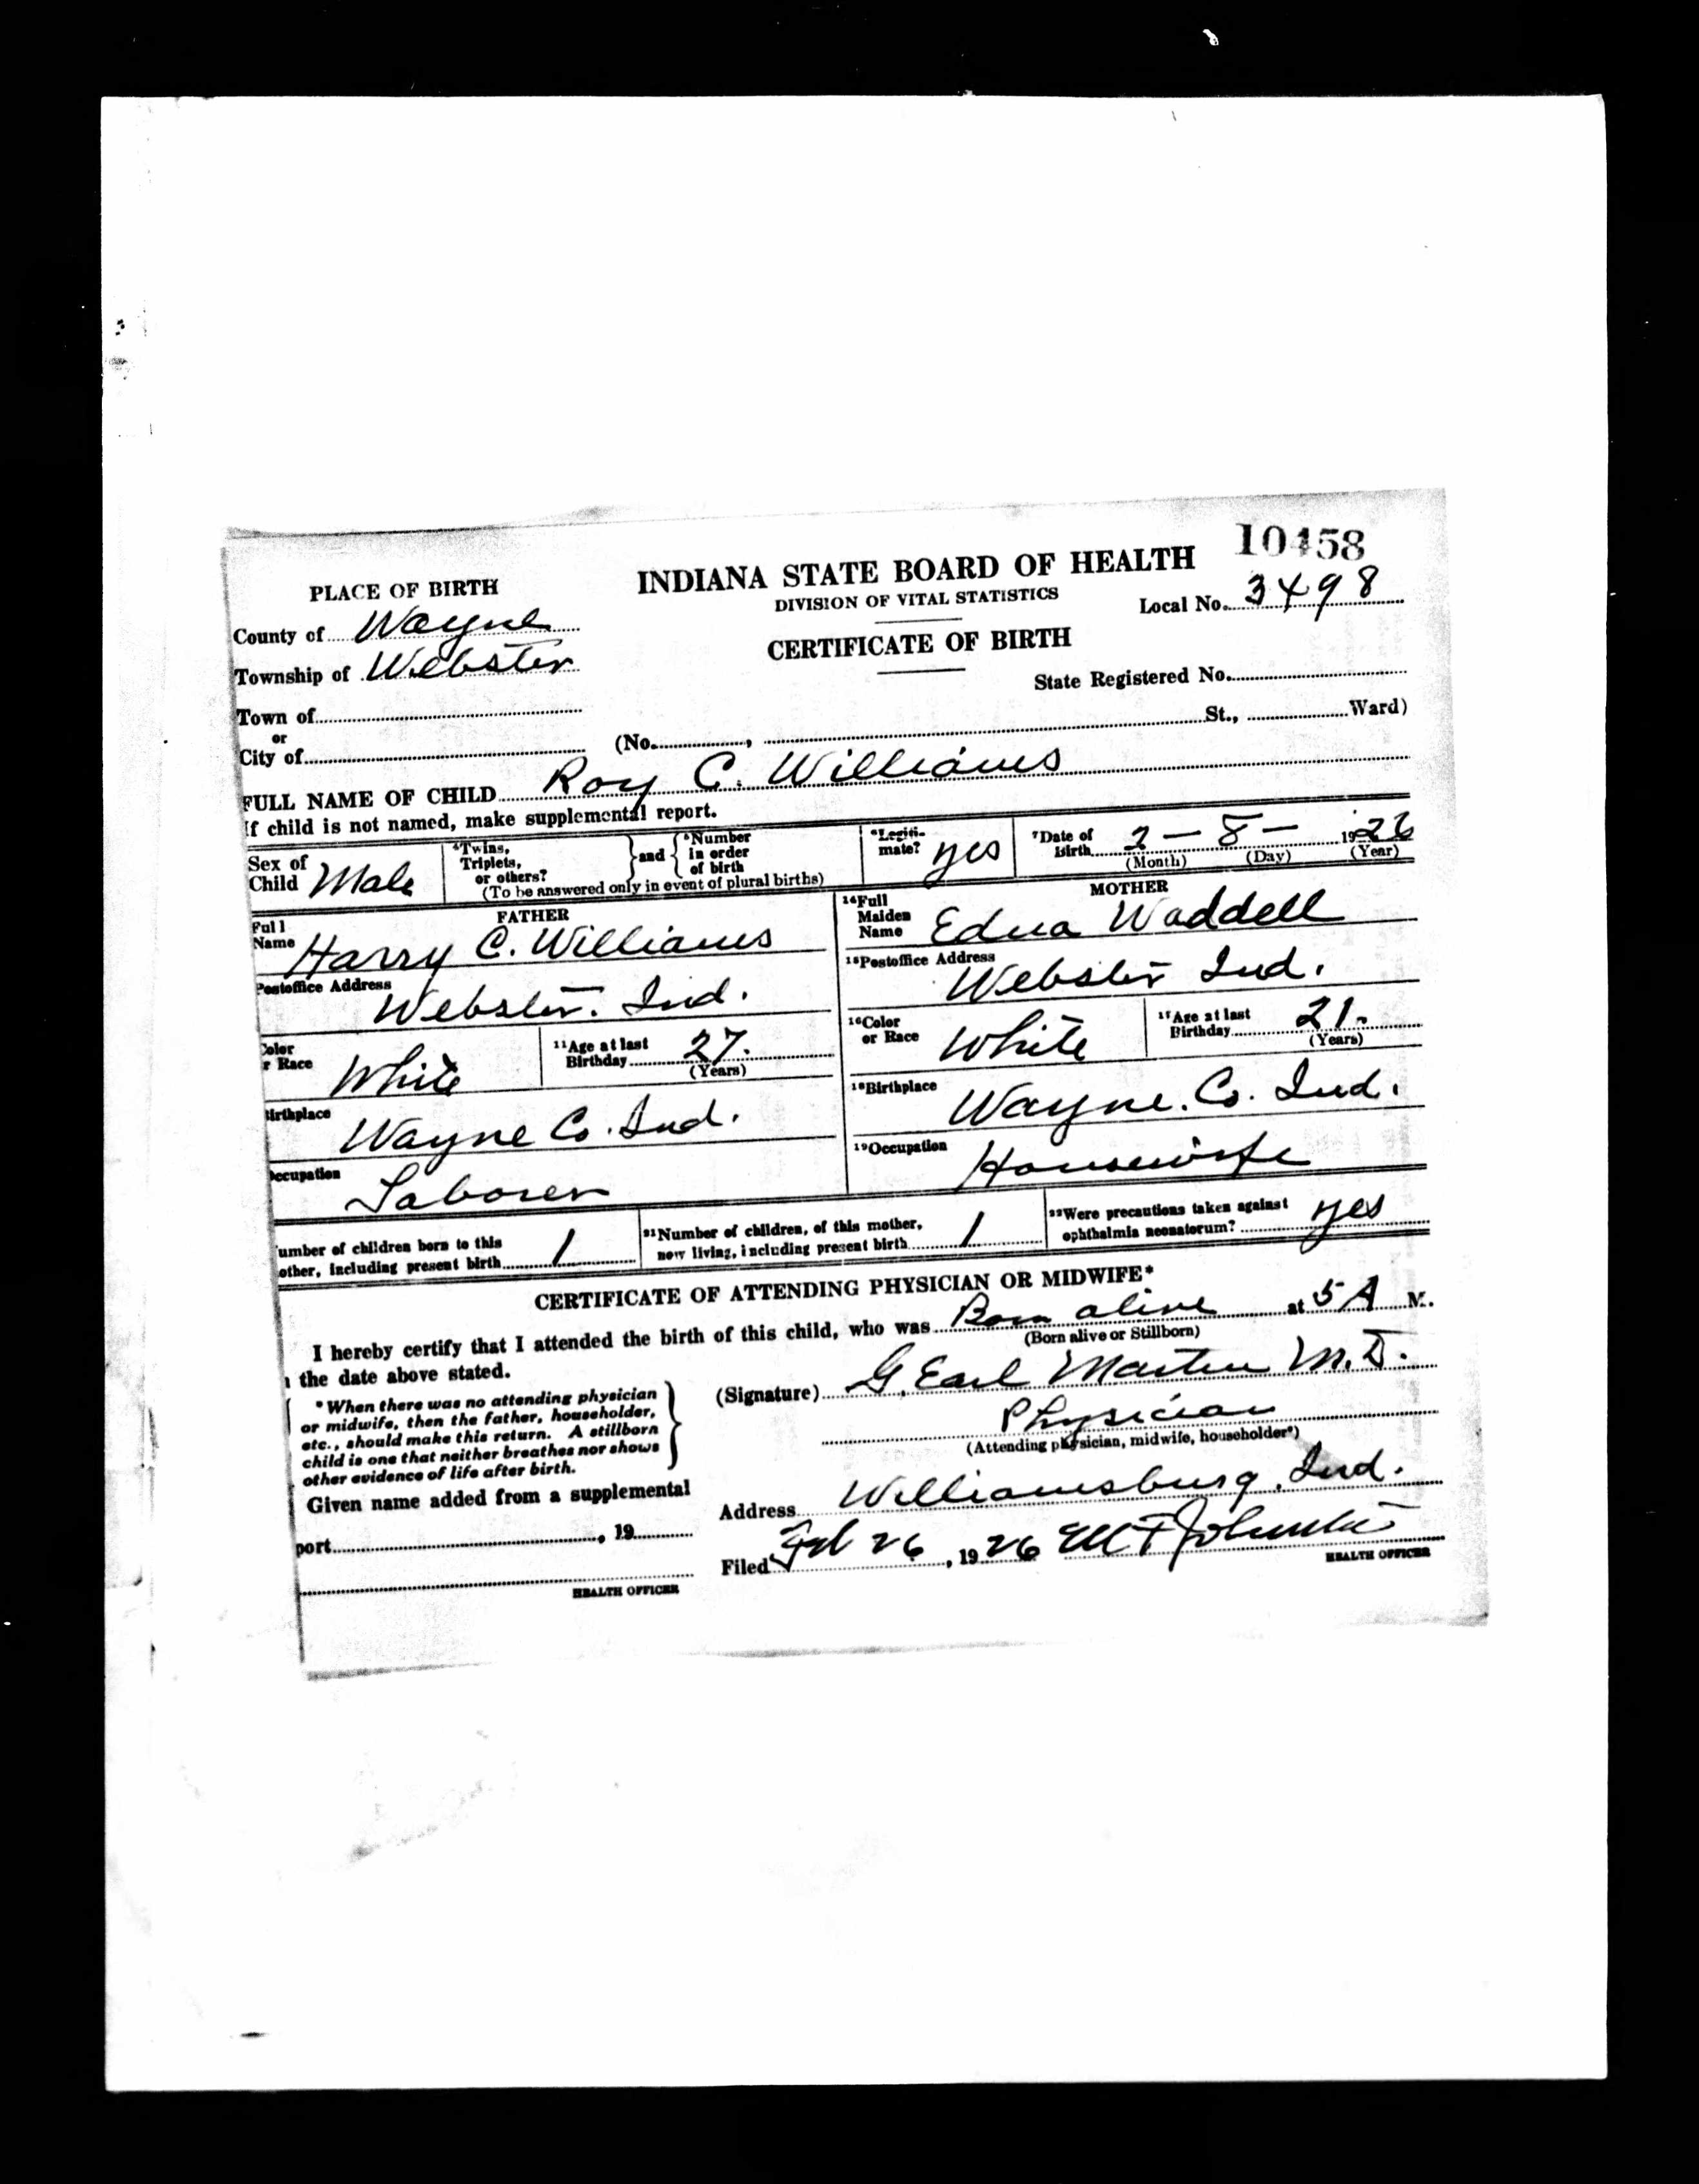 10458
PLACE OF BIRTH
INDIANA STATE BOARD OF HEALTH
DIVISION OF VITAL STATISTICS
Local No. 3498
County of Wayne
CERTIFICATE OF BIRTH
Township of Webster
State Registered No.
Town of
or
City of
(No. , St., Ward)
FULL NAME OF CHILD Roy C. Williams
If child is not named, make supplemental report.
Sex of Child Male
⁴Twins, Triplets, or others? } and { ⁵Number in order of birth
(To be answered only in event of plural births)
⁶Legiti- mate? yes
⁷Date of Birth 2 - 8 - 1926
(Month) (Day) (Year)
FATHER
Full Name Harry C. Williams
Postoffice Address Webster. Ind.
Color r Race White
¹¹Age at last Birthday 27.
(Years)
Birthplace Wayne Co. Ind.
Occupation Laborer
MOTHER
¹⁴Full Maiden Name Edna Waddell
¹⁵Postoffice Address Webster Ind.
¹⁶Color or Race White
¹⁷Age at last Birthday 21.
(Years)
¹⁸Birthplace Wayne. Co. Ind.
¹⁹Occupation Housewife
umber of children born to this other, including present birth 1
²¹Number of children, of this mother, now living, including present birth 1
²²Were precautions taken against ophthalmia neonatorum? yes
CERTIFICATE OF ATTENDING PHYSICIAN OR MIDWIFE*
I hereby certify that I attended the birth of this child, who was Born alive at 5 A M.
(Born alive or Stillborn)
the date above stated.
*When there was no attending physician
or midwife, then the father, householder,
etc., should make this return. A stillborn
child is one that neither breathes nor shows
other evidence of life after birth.
(Signature) G. Earl Martin M.D.
Physician
(Attending physician, midwife, householder*)
Given name added from a supplemental
port , 19
HEALTH OFFICER
Address Williamsburg, Ind.
Filed Feb 26, 1926
HEALTH OFFICER